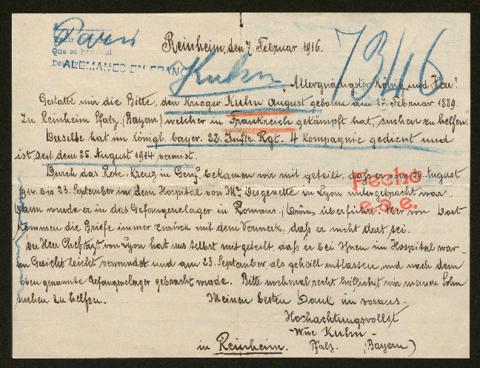 Paris
Reinheim, den 7. Februar 1916.
ALEMANES EN FRANC
Kuhn
7346
Allergnädigster König und Herr!
Gestatte mir die Bitte, den Krieger Kuhn August geboren am 17. Februar 1889.
zu Reinheim Pfalz (Bayern) welcher in Frankreich gekämpft hat, suchen zu helfen.
Derselbe hat im königl. bayer. 22. Inftr. Rgt. 4 Kompagnie gedient und
ist seit dem 25. August 1914 vermist.
Durch das Rote-Kreuz in Genf bekamen wir mit geteilt, daß er von August
bis 23. September in dem Hospital von Desgenette in Lyon untergebracht war
dann wurde er in das Gefangenelager in Romans überführt von Dort
kommen die Briefe immer zurück mit dem Vermerk, daß er nicht dort sei.
Fecho
e. s. e.
Der Herr Chefarzt von Lyon hat uns selbst mitgeteilt, daß er bei Ihnen im Hospital war
im Gesicht leicht verwundet und am 23. September als geheilt entlassen, und nach dem
oben genannte Gefangenelager gebracht wurde. Bitte nochmal recht höflichst mir meinen Sohn
suchen zu helfen.
Meinen besten Dank im voraus.
Hochachtungsvollst
Wwe Kuhn
in Reinheim. Pfalz. (Bayern)